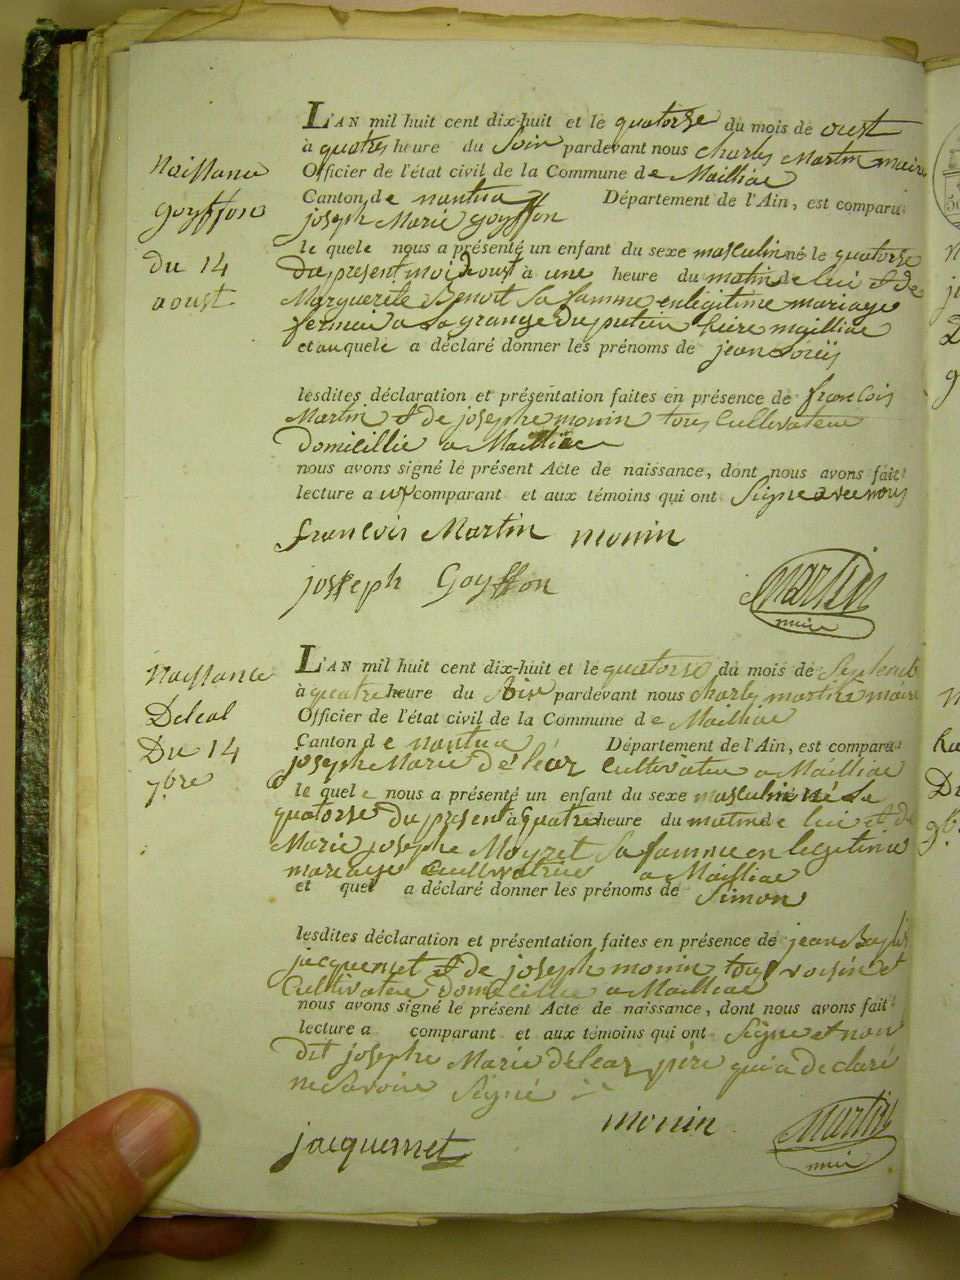 Naissance
goyffon
du 14
aoust
L'AN mil huit cent dix-huit et le quatorse du mois de oust
à quatres heure du Soir pardevant nous charles Martin maire
Officier de l'état civil de la Commune de Mailliac
Canton de nantua Département de l'Ain, est comparu
joseph Marie goyffon
le quele nous a présenté un enfant du sexe masculin né le quatorse
Du present moi d'oust à une heure du matin de lui et de
Marguerite Benoit Sa famme en legitime mariage
fermier a La grange Du
et auquele a déclaré donner les prénoms de jean Loüis
lesdites déclaration et présentation faites en présence de françois
Martin et de josephe monin tous Cultivateur
Domicillie a Mailliac
nous avons signé le présent Acte de naissance, dont nous avons fait
lecture a comparant et aux témoins qui ont Signe avec nous
françois Martin monin
josseph Goyffon
Martin
maire
Naissance
Deleal
Du 14
7bre
L'AN mil huit cent dix-huit et le quatorse du mois de Septembr
à quatre heure du Soir pardevant nous charles martin maire
Officier de l'état civil de la Commune de Mailliac
Canton de nantua Département de l'Ain, est comparu
josephe Marie deléaz Cultivateur a Mailliac
le quel e nous a présenté un enfant du sexe masculin né Le
quatorse Du present à quatre heure du matin de lui et de
Marie josephe Moyret Sa famme en legitime
mariage Cultivatrice a Mailliac
et quel a déclaré donner les prénoms de Simon
lesdites déclaration et présentation faites en présence de jean Baptis
jacquemet et de joseph monin tous voisin et
Cultivateur domicillie a Mailliac
nous avons signé le présent Acte de naissance, dont nous avons fait
lecture a comparant et aux témoins qui ont Signe et non
dit josephe Marie deleaz père qui a declaré
ne Savoire Signé
monin
jacquemet
Martin
maire